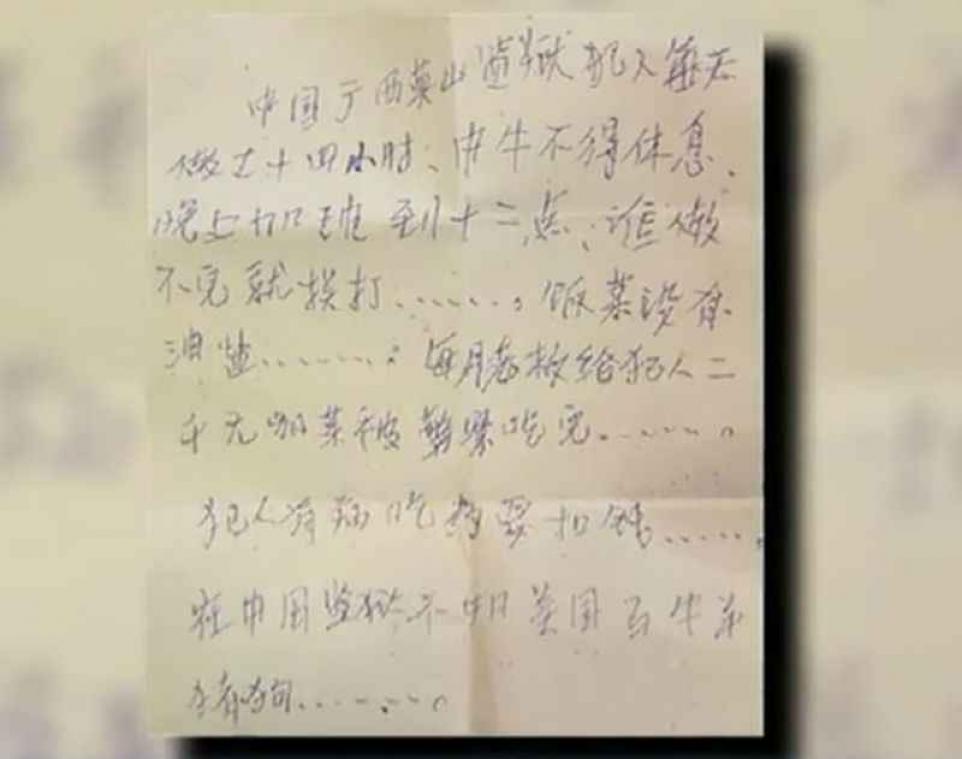 中国广西英山监狱犯人每天
做工十四小时、中午不得休息、
晚上加班到十二点、谁人做
不完就挨打........。饭菜没有
油盐........。每月老板给犯人二
千元加菜被警察吃完........。
犯人有病吃药要扣钱......。
在中国监狱不如美国马牛羊
猪狗........。